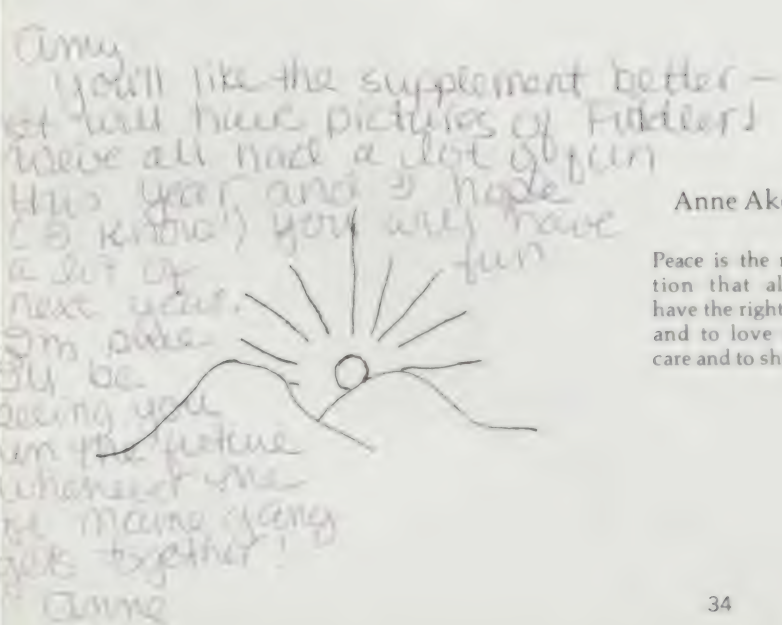 Amy
You'll like the supplement better -
it will have pictures of Fiddler!
We've all had a lot of fun
this year and I hope
(I know!) you will have
a lot of fun
next year.
I'm sure
I'll be
seeing you
in the future
whenever the
Maine gang
gets together!
Anne
Anne Ak
Peace is the
tion that al
have the right
and to love
care and to sh
34